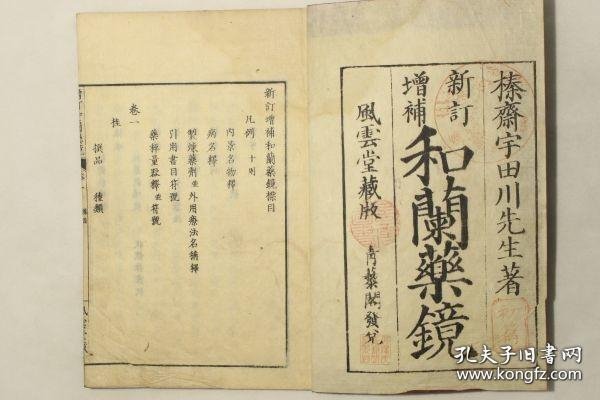 榛齋宇田川先生著
新訂
增補
和蘭藥鏡
風雲堂藏版
青藜閣發兌
新訂增補和蘭藥鏡標目
凡例 十則
內景名物釋
病名釋
製煉藥劑並外用療法名稱釋
引用書目符號
藥秤量數釋並符號
卷一
桂
撰品 種類
孔夫子旧书网
www.kongfz.com